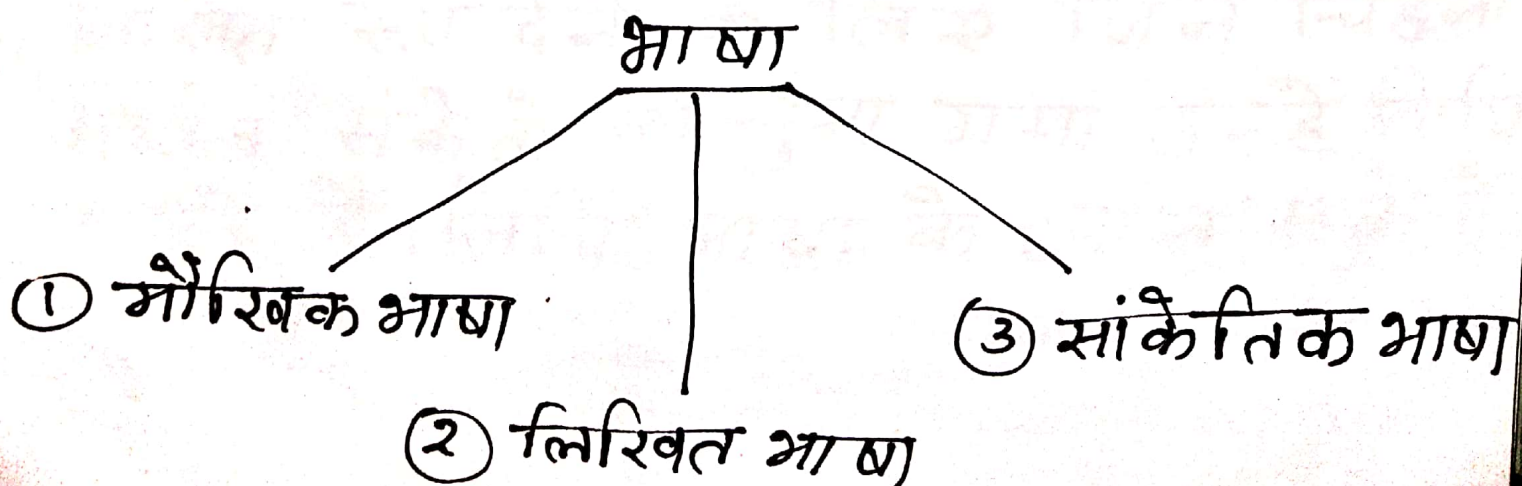 भाषा
① मौखिक भाषा
② लिखित भाषा
③ सांकेतिक भाषा